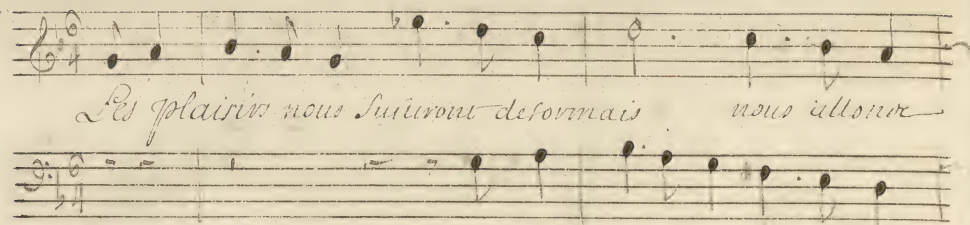 Les plaisirs nous Suivront desormais nous allons